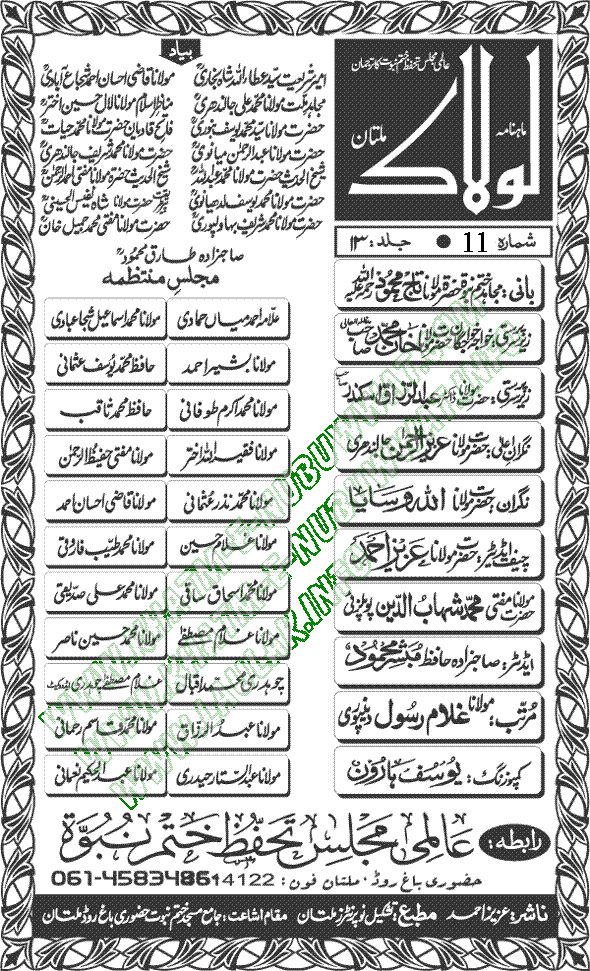 عالمی مجلس تحفظ ختم نبوت کا ترجمان
ماہنامہ
لولاک
ملتان
شماره 11 ● جلد: ۱۳
بانی: مجاہد ختم نبوۃ حضرت مولانا تاج محمود رحمۃ اللہ علیہ
زیر سرپرستی: خواجہ خواجگان حضرت مولانا خان محمد صاحب
زیر سرپرستی: حضرت مولانا ڈاکٹر عبدالرزاق اسکندر صاحب
نگران اعلیٰ: حضرت مولانا عزیز الرحمٰن جالندھری
نگران: حضرت مولانا اللہ وسایا
چیف ایڈیٹر: حضرت مولانا عزیز احمد
حضرت مولانا مفتی محمد شہاب الدین پوپلزئی
ایڈیٹر: صاجزادہ حافظ مبشر محمود
مرتب: مولانا غلام رسول دینپوری
کمپوزنگ: یوسف ہارون
بیاد
امیر شریعت سید عطاء اللہ شاہ بخاریؒ مولانا قاضی احسان احمد شجاع آبادیؒ
مجاہد ملت مولانا محمد علی جالندھریؒ مناظر اسلام مولانا لال حسین اخترؒ
حضرت مولانا سید محمد یوسف بنوریؒ فاتح قادیان حضرت مولانا محمد حیاتؒ
حضرت مولانا عبدالرحمٰن میانویؒ حضرت مولانا محمد شریف جالندھریؒ
شیخ الحدیث حضرت مولانا محمد عبداللہؒ شیخ الحدیث حضرت مولانا مفتی احمد الرحمٰنؒ
حضرت مولانا محمد یوسف لدھیانویؒ حضرت مولانا شاہ نفیس الحسینیؒ
حضرت مولانا محمد شریف بہاولپوریؒ حضرت مولانا مفتی محمد جمیل خانؒ
صاجزادہ طارق محمودؒ
مجلس منتظمہ
علامہ احمد میاں حمادی مولانا محمد اسماعیل شجاعبادی
مولانا بشیر احمد حافظ محمد یوسف عثمانی
مولانا محمد اکرم طوفانی حافظ محمد ثاقب
مولانا فقیر اللہ اختر مولانا مفتی حفیظ الرحمٰن
مولانا محمد نذر عثمانی مولانا قاضی احسان احمد
مولانا غلام حسین مولانا محمد طیب فاروقی
مولانا محمد اسحاق ساقی مولانا محمد علی صدیقی
مولانا غلام مصطفےٰ مولانا محمد حسین ناصر
چوہدری محمد اقبال غلام مصطفےٰ چوہدری ایڈووکیٹ
مولانا عبدالرزاق مولانا محمد قاسم رحمانی
مولانا عبدالستار حیدری مولانا عبدالحکیم نعمانی
رابطہ: عالمی مجلس تحفظ ختم نبوۃ
حضوری باغ روڈ، ملتان فون:
ناشر: عزیز احمد مطبع: تشکیل نو پرنٹرز ملتان مقام اشاعت: جامع مسجد ختم نبوت حضوری باغ روڈ ملتان